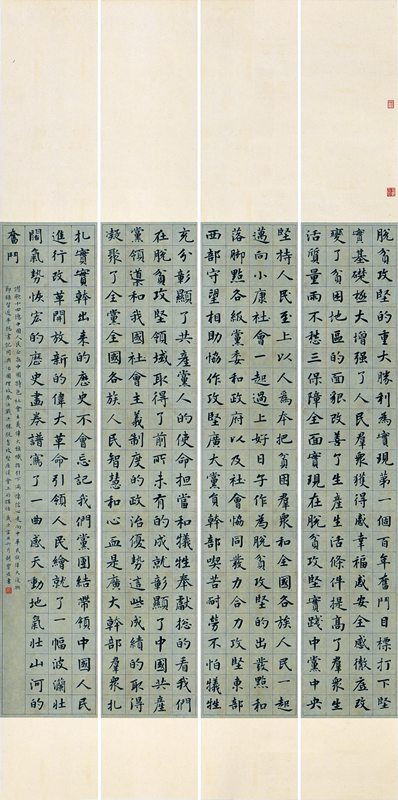 脫貧攻堅的重大勝利為實現第一個百年奮鬥目標打下堅
實基礎極大增強了人民羣衆獲得感幸福感安全感徹底改
變了貧困地區的面貌改善了生產生活條件提高了羣衆生
活質量兩不愁三保障全面實現在脫貧攻堅實踐中黨中央
堅持人民至上以人為本把貧困羣衆和全國各族人民一起
邁向小康社會一起過上好日子作為脫貧攻堅的出發點和
落脚點各級黨委和政府以及社會協同發力合力攻堅東部
西部守望相助協作攻堅廣大黨員幹部喫苦耐勞不怕犧牲
充分彰顯了共產黨人的使命擔當和犧牲奉獻總的看我們
在脫貧攻堅領域取得了前所未有的成就彰顯了中國共產
黨領導和我國社會主義制度的政治優勢這些成績的取得
凝聚了全黨全國各族人民智慧和心血是廣大幹部羣衆扎
扎實實幹出來的歷史不會忘記我們黨團結帶領中國人民
進行改革開放新的偉大革命引領人民繪就了一幅波瀾壯
闊氣勢恢宏的歷史畫卷譜寫了一曲感天動地氣壯山河的
奮鬥